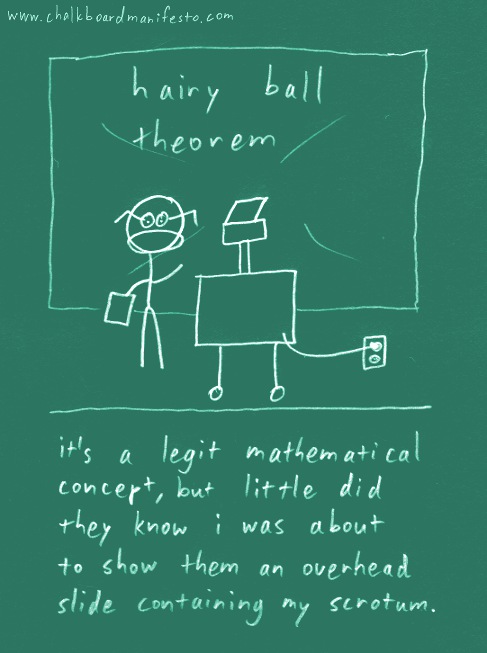 www.chalkboardmanifesto.com
hairy ball
theorem
it's a legit mathematical
concept, but little did
they know i was about
to show them an overhead
slide containing my scrotum.